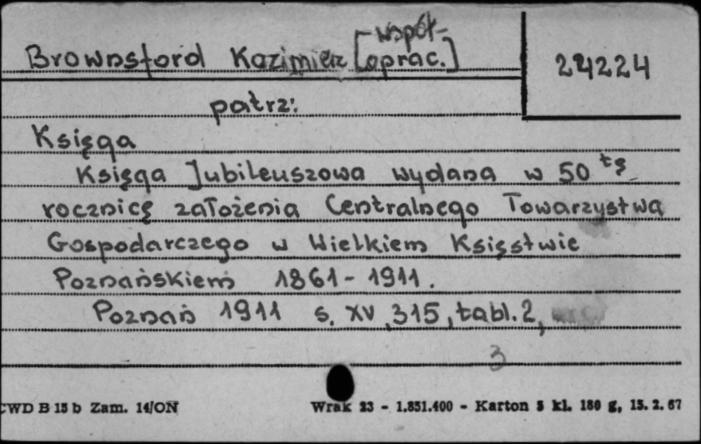 współ-
Brownsford Kazimierz [oprac.]
24224
patrz:
Księga
Księga Jubileuszowa wydana w 50tę
rocznicę założenia Centralnego Towarzystwa
Gospodarczego w Wielkiem Księstwie
Poznańskiem 1861-1911.
Poznań 1911 s. XV, 315, tabl. 2,
3
CWD B 15 b Zam. 14/ON
Wrak 23 - 1.851.400 - Karton 5 kl. 180 g, 15. 2. 67